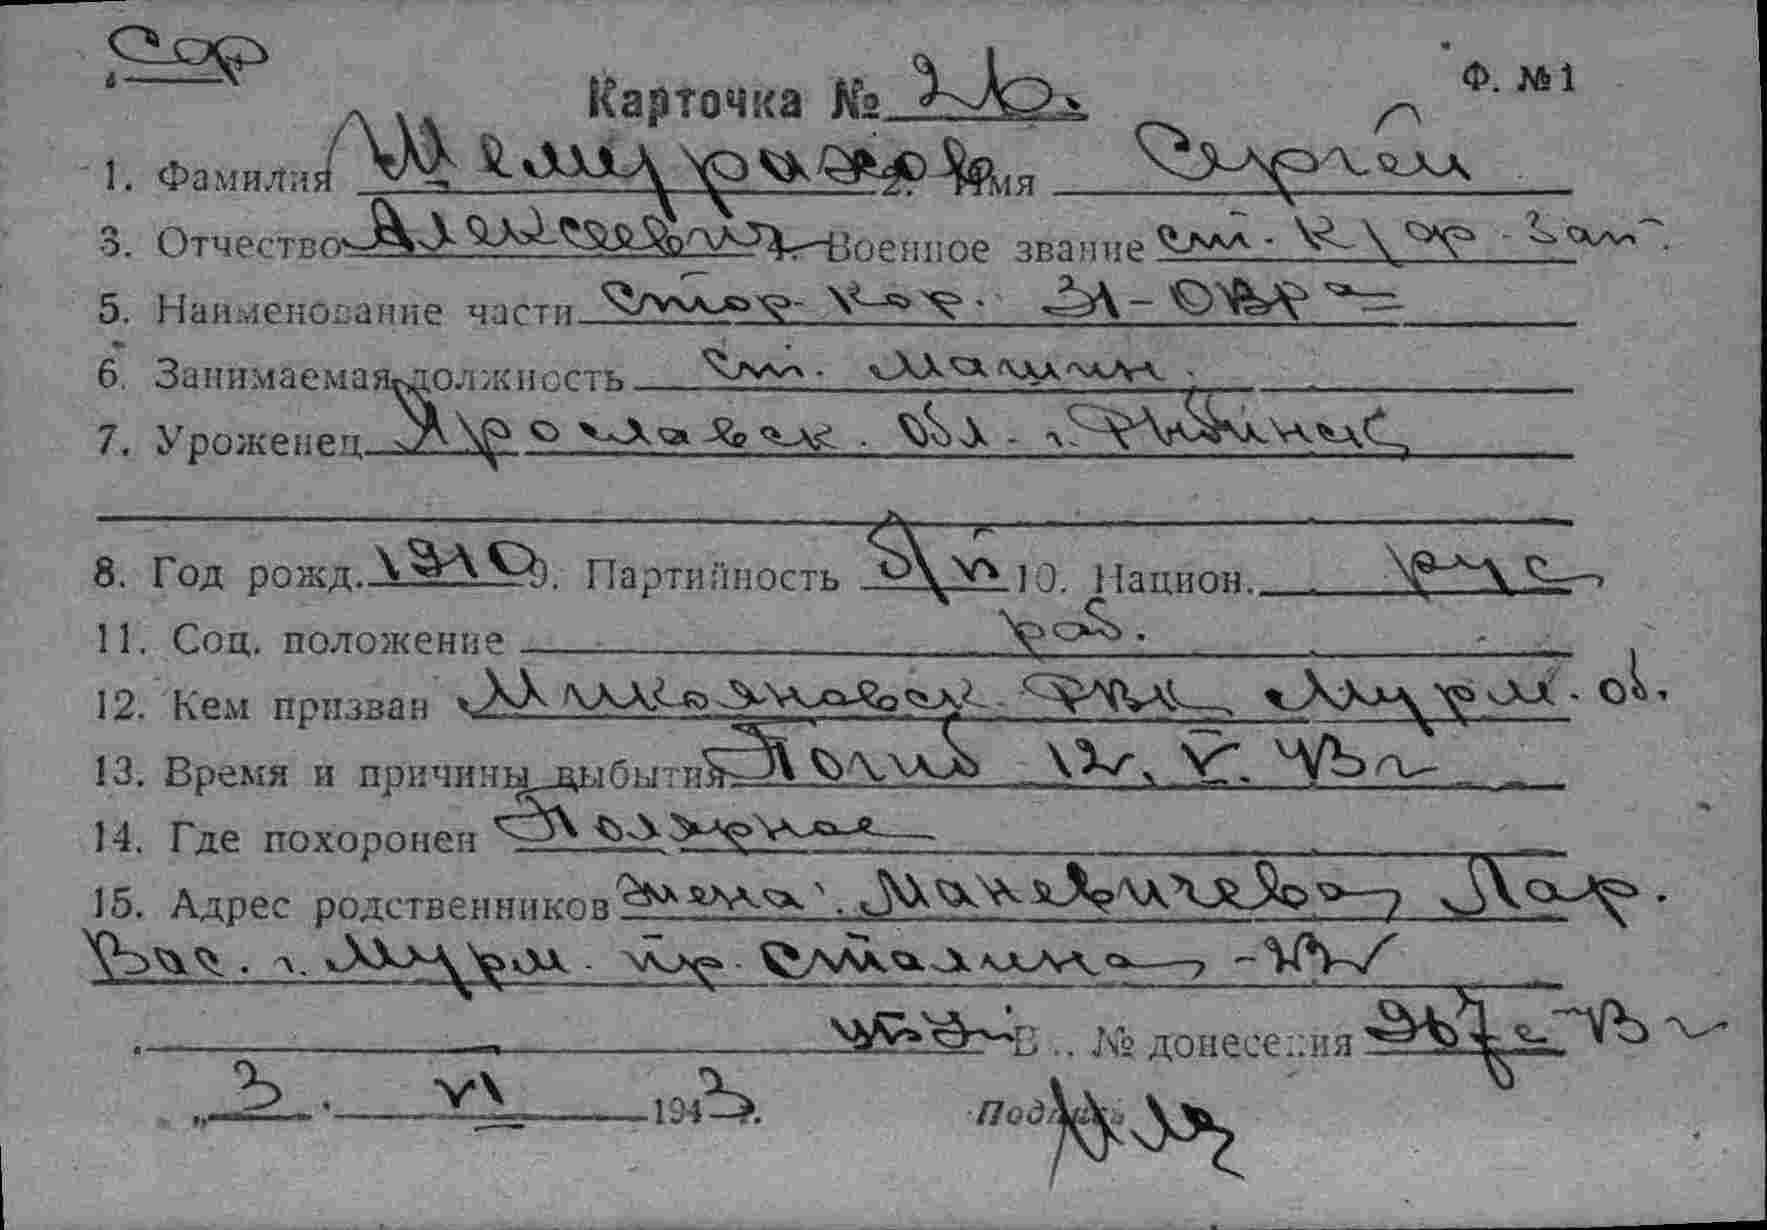 Ф. №1
Карточка № 26.
1. Фамилия Шемуранов 2. Имя Сергей
3. Отчество Алексеевич Военное звание ст. к/ф. зап.
5. Наименование части Стор. кор. 31-ОВРа
6. Занимаемая должность ст. машин.
7. Уроженец Ярославск. обл. г. Рыбинск
8. Год рожд. 1910 9. Партийность б/п 10. Национ. рус
11. Соц. положение раб.
12. Кем призван Микояновск РВК Мурм. об.
13. Время и причины выбытия Погиб 12. V. 43 г
14. Где похоронен Полярное
15. Адрес родственников жена: Маневичева Лар.
Вас. г. Мурм. пр. Сталина -22
В.. № донесения 967с 43 г
„ 3 . VI 1943.
Подпись